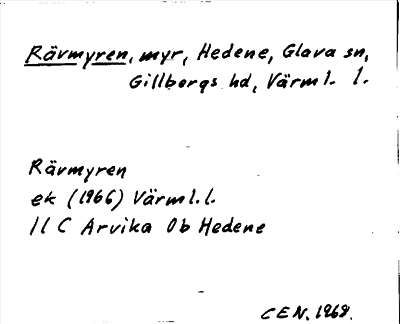 Rävmyren, myr, Hedene, Glava sn,
Gillbergs hd, Värml. l.
Rävmyren
ek (1966) Värml.l.
11 C Arvika 0b Hedene
CEN. 1968.